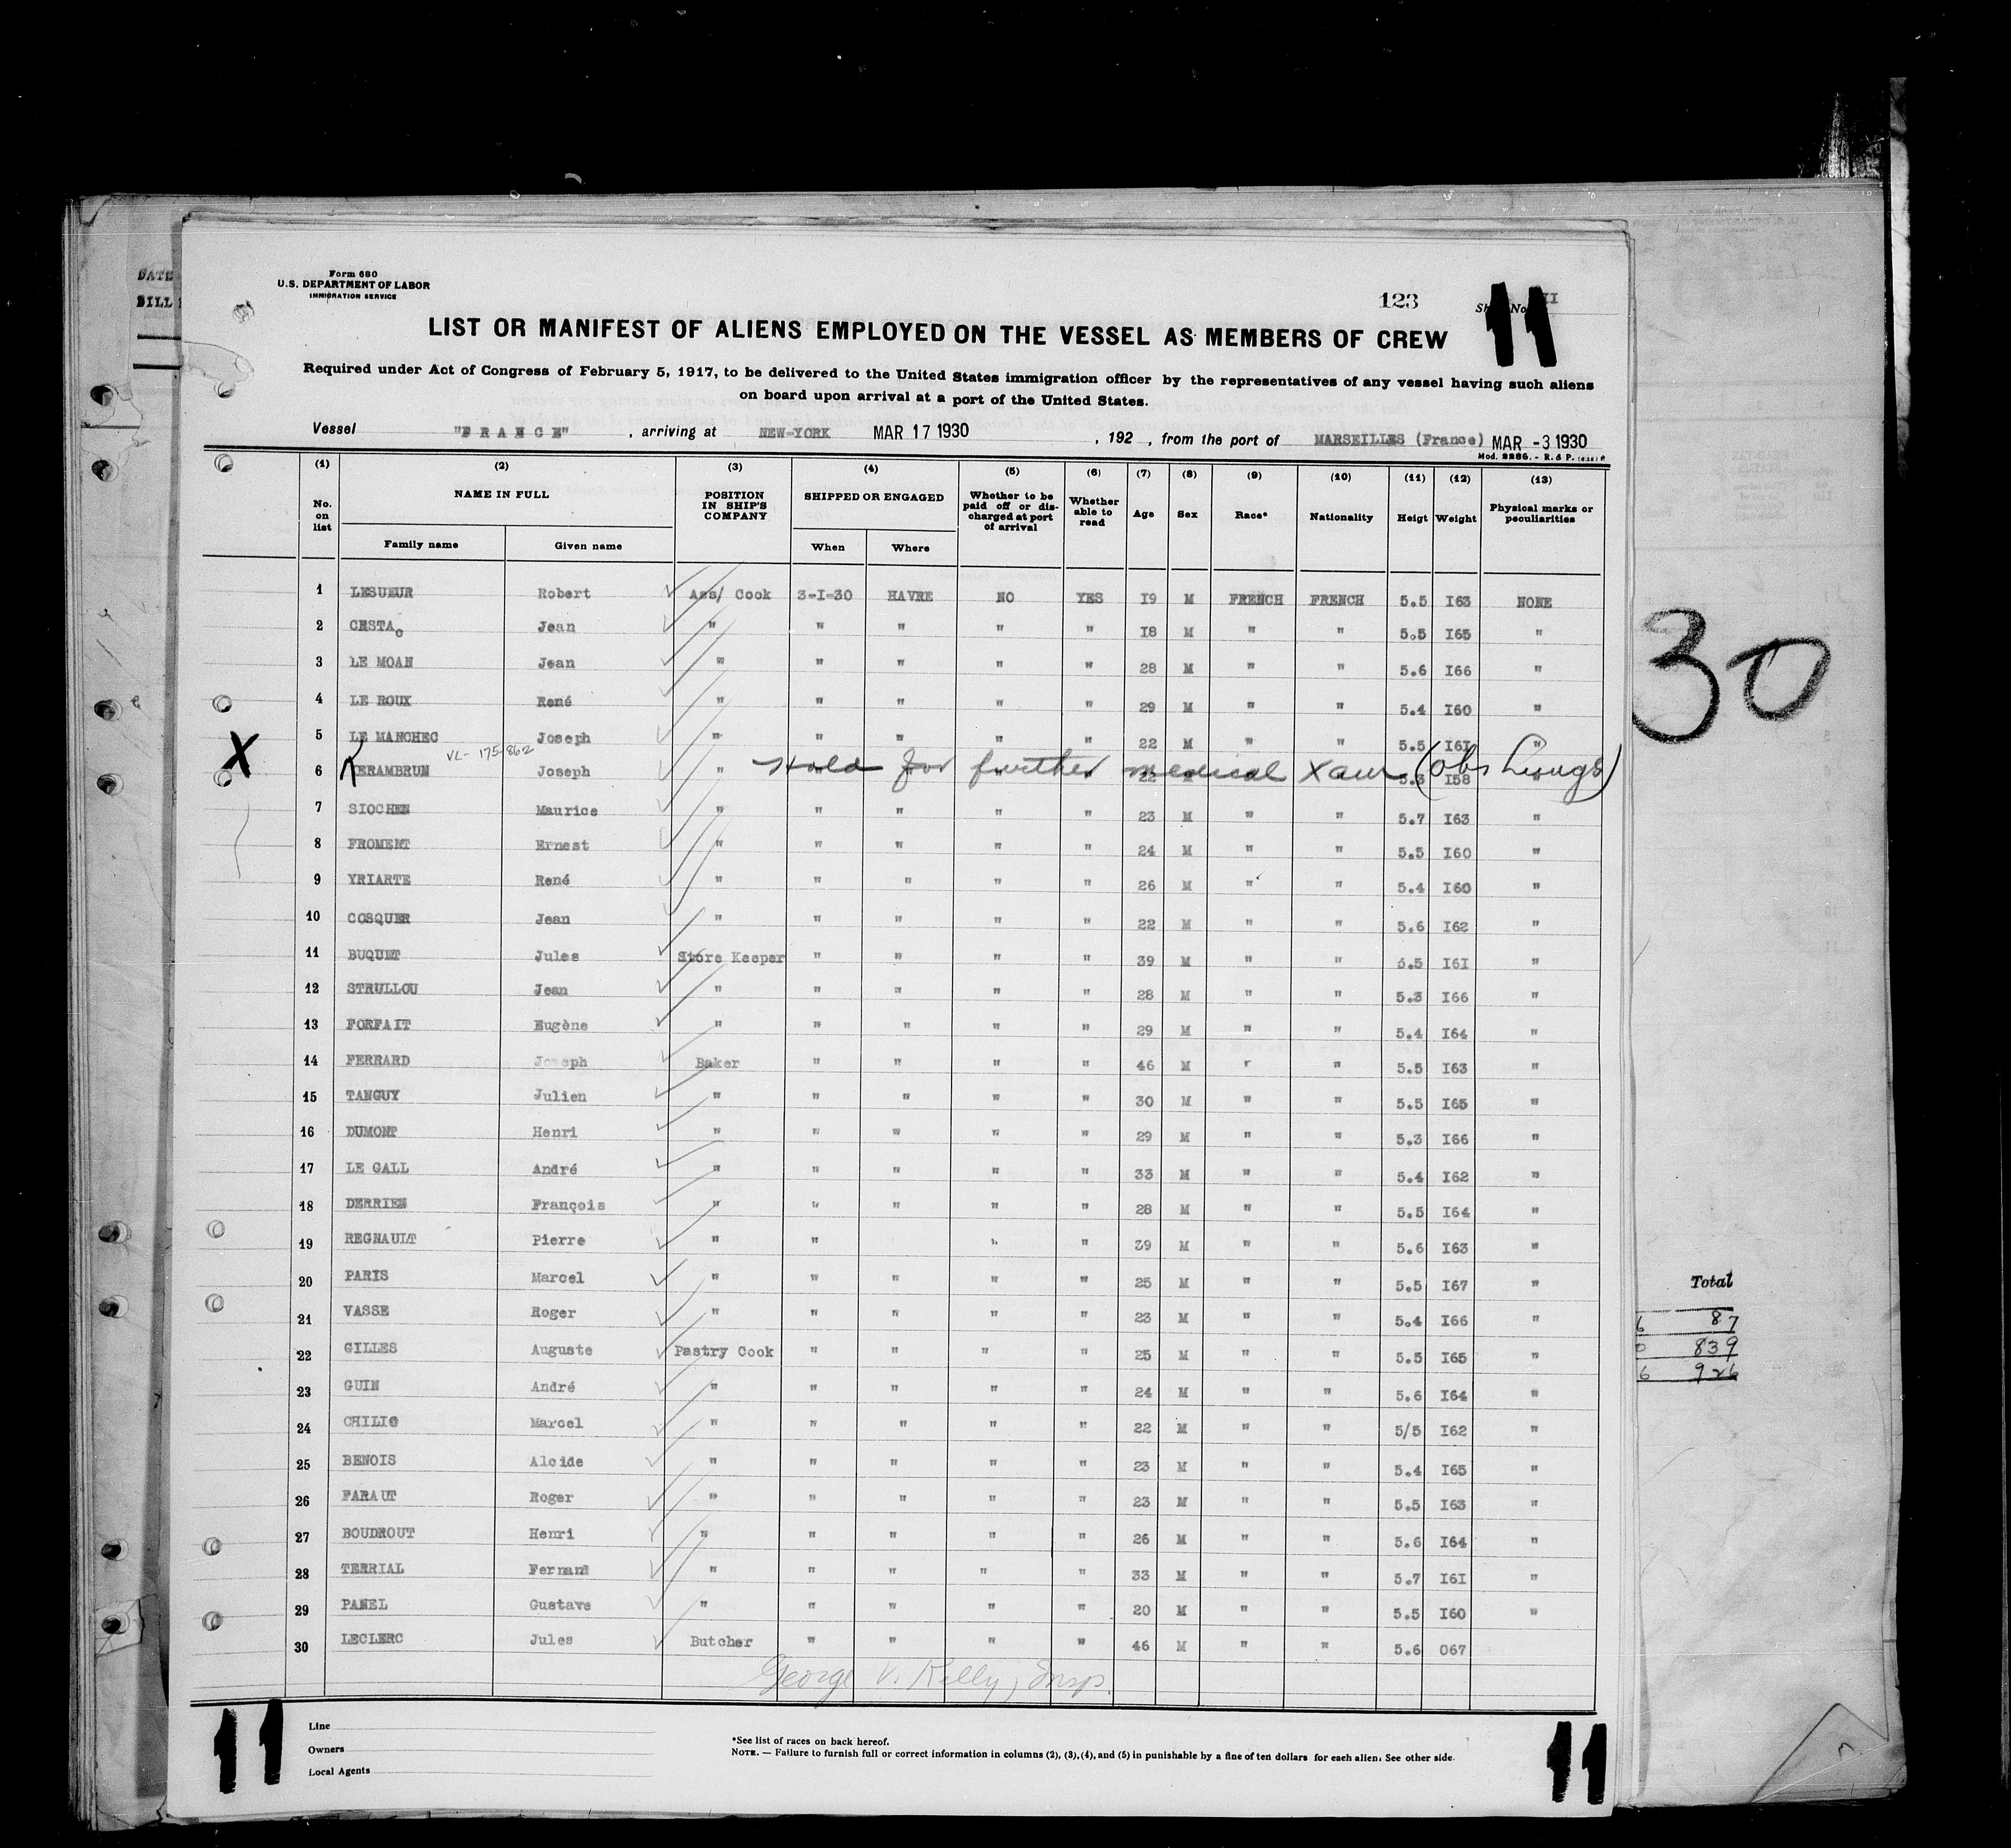 DATE
BILL
Form 680
U.S. DEPARTMENT OF LABOR
IMMIGRATION SERVICE
123
Sh No II
11
LIST OR MANIFEST OF ALIENS EMPLOYED ON THE VESSEL AS MEMBERS OF CREW
Required under Act of Congress of February 5, 1917, to be delivered to the United States immigration officer by the representatives of any vessel having such aliens
on board upon arrival at a port of the United States.
Vessel "FRANCE" , arriving at NEW-YORK MAR 17 1930 , 192 , from the port of MARSEILLES (France) MAR -3 1930
Mod. 2286. - R. & P.
(1) (2) (3) (4) (5) (6) (7) (8) (9) (10) (11) (12) (13)
No. on list NAME IN FULL POSITION IN SHIP'S COMPANY SHIPPED OR ENGAGED Whether to be paid off or discharged at port of arrival Whether able to read Age Sex Race* Nationality Heigt Weight Physical marks or peculiarities
Family name Given name When Where
1 LESUEUR Robert Ass/ Cook 3-I-30 HAVRE NO YES I9 M FRENCH FRENCH 5.5 I63 NONE
2 CESTAC Jean " " " " " I8 M " " 5.5 I65 "
3 LE MOAN Jean " " " " " 28 M " " 5.6 I66 "
4 LE ROUX René " " " " " 29 M " " 5.4 I60 "
5 LE MANCHEC Joseph " " " " " 22 M " " 5.5 I6I "
VL- 175-862
X 6 KERAMBRUN Joseph " Hold for further medical Xam (obs Lungs) 22 5.3 I58
7 SIOCHEN Maurice " " " " " 23 M " " 5.7 I63 "
8 FROMENT Ernest " " " " " 24 M " " 5.5 I60 "
9 YRIARTE René " " " " " 26 M " " 5.4 I60 "
10 COSQUER Jean " " " " " 22 M " " 5.6 I62 "
11 BUQUET Jules Store Keeper " " " " 39 M " " 6.5 I6I "
12 STRULLOU Jean " " " " " 28 M " " 5.3 I66 "
13 FORFAIT Eugène " " " " " 29 M " " 5.4 I64 "
14 FERRARD Joseph Baker " " " " 46 M " " 5.5 I63 "
15 TANGUY Julien " " " " " 30 M " " 5.5 I65 "
16 DUMONT Henri " " " " " 29 M " " 5.3 I66 "
17 LE GALL André " " " " " 33 M " " 5.4 I62 "
18 DERRIEN François " " " " " 28 M " " 5.5 I64 "
19 REGNAULT Pierre " " " " 39 M " " 5.6 I63 "
20 PARIS Marcel " " " " " 25 M " " 5.5 I67 "
21 VASSE Roger " " " " " 23 M " " 5.4 I66 "
22 GILLES Auguste Pastry Cook " " " " 25 M " " 5.5 I65 "
23 GUIN André " " " " " 24 M " " 5.6 I64 "
24 CHILIO Marcel " " " " " 22 M " " 5/5 I62 "
25 BENOIS Alcide " " " " " 23 M " " 5.4 I65 "
26 FARAUT Roger " " " " " 23 M " " 5.5 I63 "
27 BOUDROUT Henri " " " " " 26 M " " 5.6 I64 "
28 TERRIAL Fernand " " " " " 33 M " " 5.7 I6I "
29 PANEL Gustave " " " " " 20 M " " 5.5 I60 "
30 LECLERC Jules Butcher " " " " 46 M " " 5.6 067
George V. Kelly, Insp.
11
Line
Owners
Local Agents
*See list of races on back hereof.
NOTE. — Failure to furnish full or correct information in columns (2), (3), (4), and (5) in punishable by a fine of ten dollars for each alien. See other side.
11
30
Total
6 87
0 839
6 926